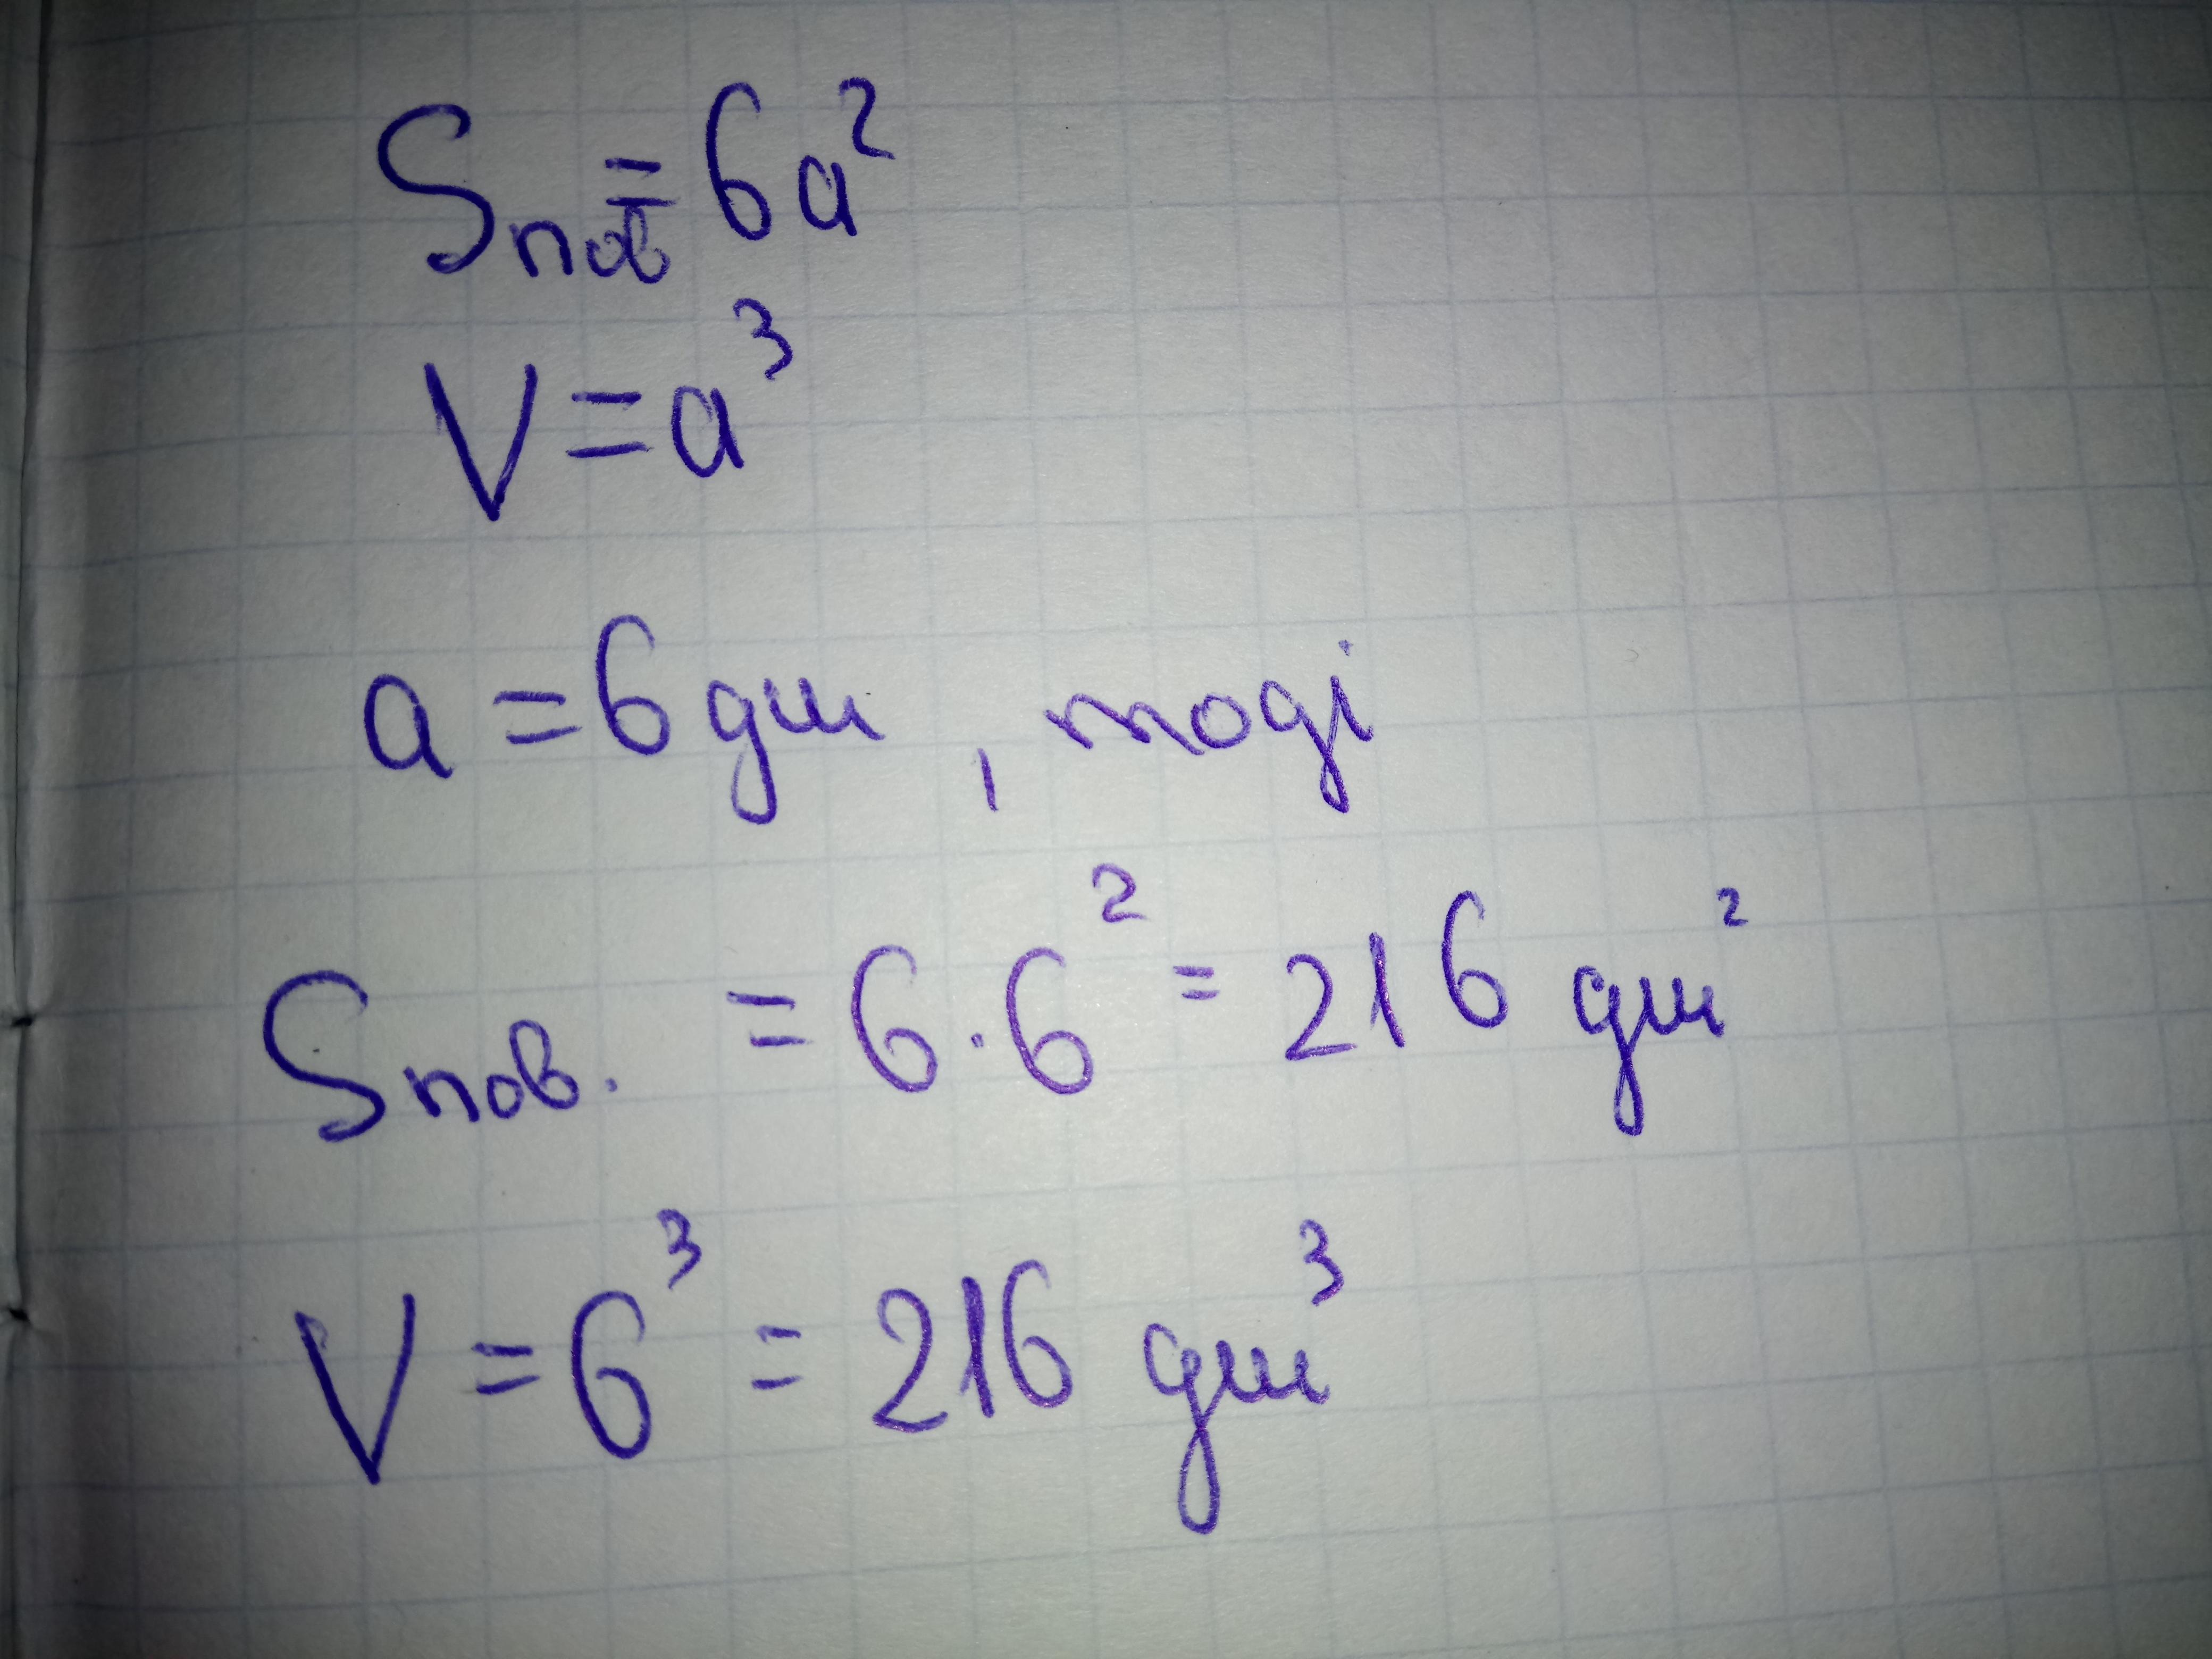 Sпов = 6a²
V = a³
a = 6 дм , тоді
Sпов. = 6 · 6² = 216 дм²
V = 6³ = 216 дм³